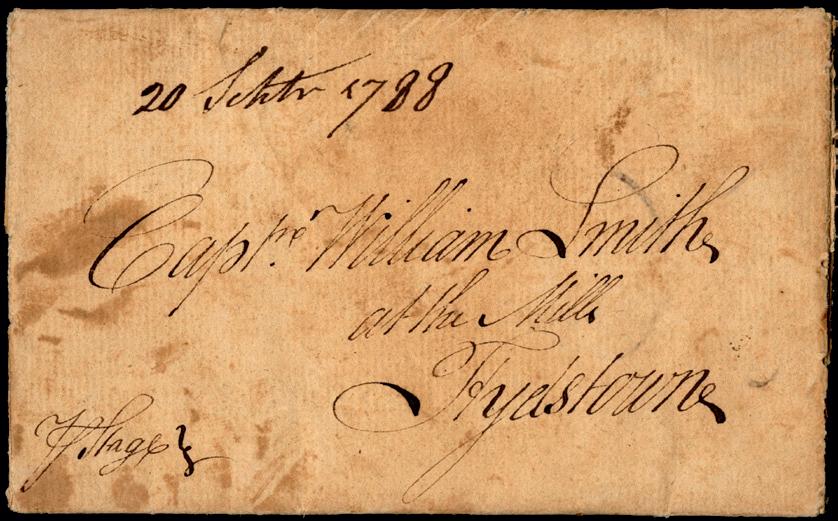 20 Sebtr 1788
Captn. William Smith
at the Mill
Hydstown
Stage